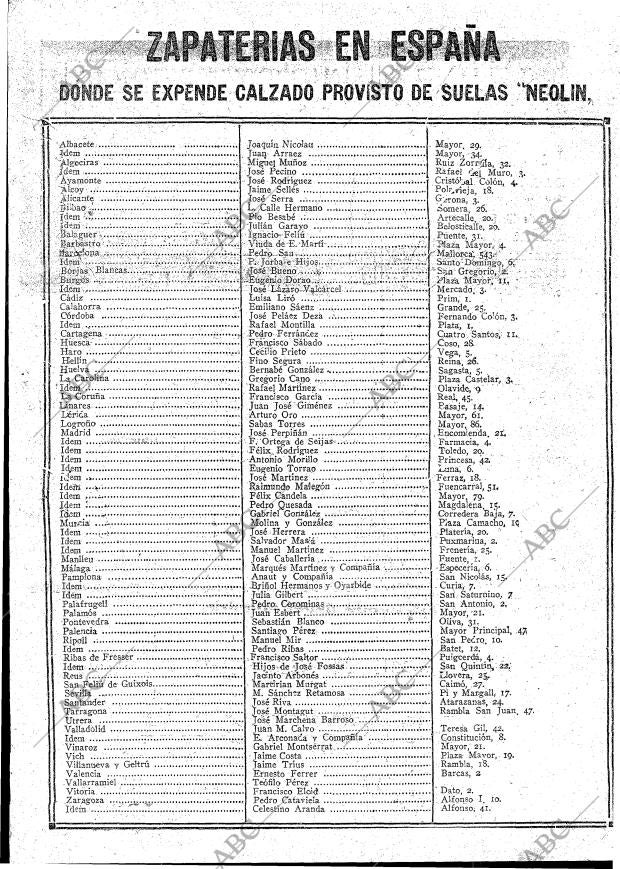 ZAPATERIAS EN ESPAÑA
DONDE SE EXPENDE CALZADO PROVISTO DE SUELAS "NEOLIN,
Albacete Joaquín Nicolau Mayor, 29.
Idem Juan Arraez Mayor, 34.
Algeciras Miguel Muñoz Ruiz Zorrilla, 32.
Idem José Pecino Rafael del Muro, 3.
Ayamonte José Rodríguez Cristóbal Colón, 4.
Alcoy Jaime Sellés 18.
Alicante José Serra Gerona, 3.
Bilbao L. Calle Hermano Somera, 26.
Idem Pío Besabé Artecalle, 20.
Idem Julián Garayo Belosticalle, 20.
Balaguer Ignacio Feliú Puente, 31.
Barbastro Viuda de E. Martí Plaza Mayor, 4.
Barcelona Pedro Sau Mallorca, 543.
Idem P. Jorba e Hijos Santo Domingo, 6.
Borjas Blancas José Bueno San Gregorio, 2.
Burgos Eugenio Dorao Plaza Mayor, 11.
Idem José Lázaro Valcárcel Mercado, 3.
Cádiz Luisa Liró Prim, 1.
Calahorra Emiliano Sáenz Grande, 25.
Córdoba José Peláez Deza Fernando Colón, 3.
Idem Rafael Montilla Plata, 1.
Cartagena Pedro Ferrández Cuatro Santos, 11.
Huesca Francisco Sábado Coso, 28.
Haro Cecilio Prieto Vega, 5.
Hellín Fino Segura Reina, 26.
Huelva Bernabé González Sagasta, 5.
La Carolina Gregorio Cano Plaza Castelar, 3.
Idem Rafael Martínez Olavide, 9
La Coruña Francisco García Real, 45.
Linares Juan José Giménez Pasaje, 14.
Lérida Arturo Oro Mayor, 61.
Logroño Sabas Torres Mayor, 86.
Madrid José Perpiñán Encomienda, 21.
Idem F. Ortega de Seijas Farmacia, 4.
Idem Félix Rodríguez Toledo, 20.
Idem Antonio Morillo Princesa, 42.
Idem Eugenio Torrao Luna, 6.
Idem José Martínez Ferraz, 18.
Idem Raimundo Malegón Fuencarral, 51.
Idem Félix Candela Mayor, 79.
Idem Pedro Quesada Magdalena, 15.
Idem Gabriel González Corredera Baja, 7.
Murcia Molina y González Plaza Camacho, 19
Idem José Herrera Platería, 20.
Idem Salvador Masiá Puxmarina, 2.
Idem Manuel Martínez Frenería, 25.
Manlleu José Caballería Fuente, 1.
Málaga Marqués Martínez y Compañía Especería, 6.
Pamplona Anaut y Compañía San Nicolás, 15.
Idem Briñol Hermanos y Oyarbide Curia, 7.
Idem Julia Gilbert San Saturnino, 7
Palafrugell Pedro Corominas San Antonio, 2.
Palamós Juan Esbert Mayor, 21.
Pontevedra Sebastián Blanco Oliva, 31.
Palencia Santiago Pérez Mayor Principal, 47.
Ripoll Manuel Mir San Pedro, 10.
Idem Pedro Ribas Batet, 12.
Ribas de Fresser Francisco Saltor Puigcerdá, 4.
Idem Hijos de José Fossas San Quintín, 22.
Reus Jacinto Arbonés Llovera, 25.
San Feliú de Guixols Martirian Murgat Caimó, 27.
Sevilla M. Sánchez Retamosa Pi y Margall, 17.
Santander José Riva Atarazanas, 24.
Tarragona José Montagut Rambla San Juan, 47.
Utrera José Marchena Barroso
Valladolid Juan M. Calvo Teresa Gil, 42.
Idem E. Arconada y Compañía Constitución, 8.
Vinaroz Gabriel Montserrat Mayor, 21.
Vich Jaime Costa Plaza Mayor, 19.
Villanueva y Geltrú Jaime Trius Rambla, 18.
Valencia Ernesto Ferrer Barcas, 2
Vallarramiel Teófilo Pérez
Vitoria Francisco Eloíd Dato, 2.
Zaragoza Pedro Cataviela Alfonso I, 10.
Idem Celestino Aranda Alfonso, 41.